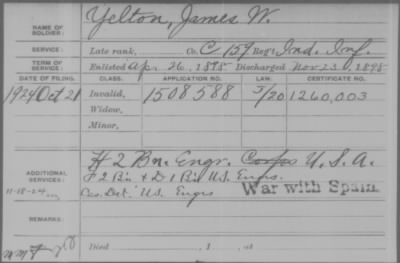 NAME OF SOLDIER: Yelton, James W.
SERVICE: Late rank, Co. C, 159 Reg't Ind. Inf.
TERM OF SERVICE: Enlisted Apr. 26, 1898 Discharged Nov. 23, 1898
DATE OF FILING. CLASS. APPLICATION NO. LAW. CERTIFICATE NO.
1924 Oct 21 Invalid, 1508588 5/20 1260,003
Widow,
Minor,
ADDITIONAL SERVICES: H 2 Bn. Engr. Corps U.S.A.
F 2 Bn & D 1 Bn U.S. Engrs.
11-18-24 Cas. Det. U.S. Engrs War with Spain
REMARKS:
Died , 1 , at